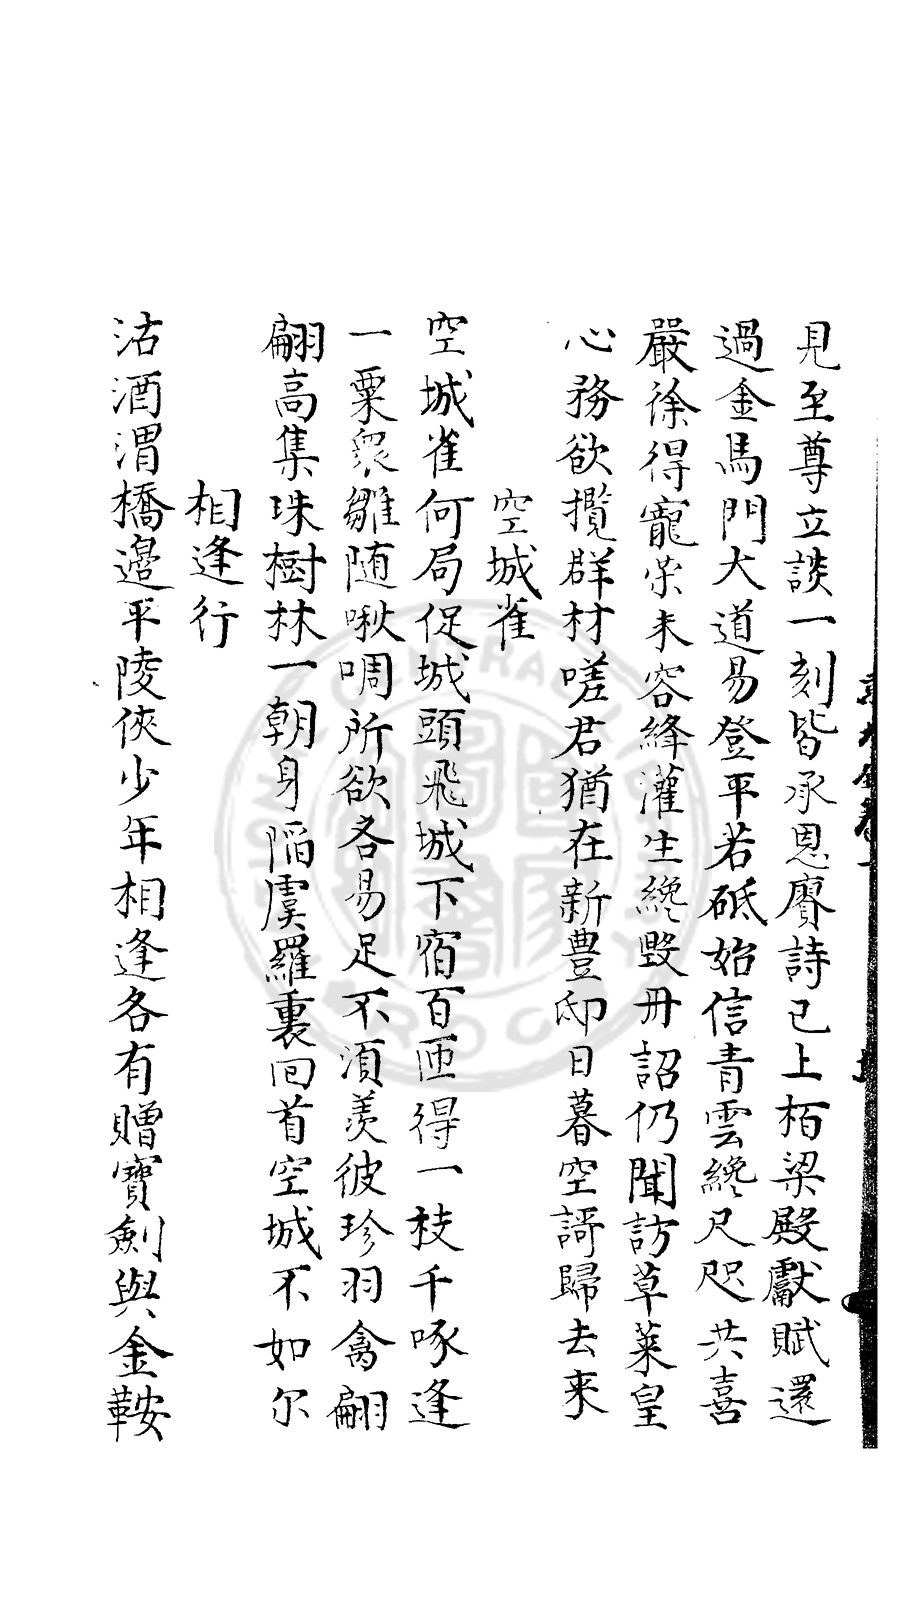 見至尊立談一刻皆承恩賡詩已上栢梁殿獻賦還
過金馬門大道易登平若砥始信青雲纔尺咫共喜
嚴徐得寵榮未容絳灌生纔毀冊詔仍聞訪草萊皇
心務欲攬群材嗟君猶在新豊邸日暮空謌歸去来
空城雀
空城雀何局促城頭飛城下宿百匝得一枝千啄逢
一粟衆雛随啾啁所欲各易足不須羡彼珍羽禽翩
翩高集珠樹林一朝身陷虞羅裏回首空城不如尔
相逢行
沽酒渭橋邉平陵俠少年相逢各有贈寶劍與金鞍